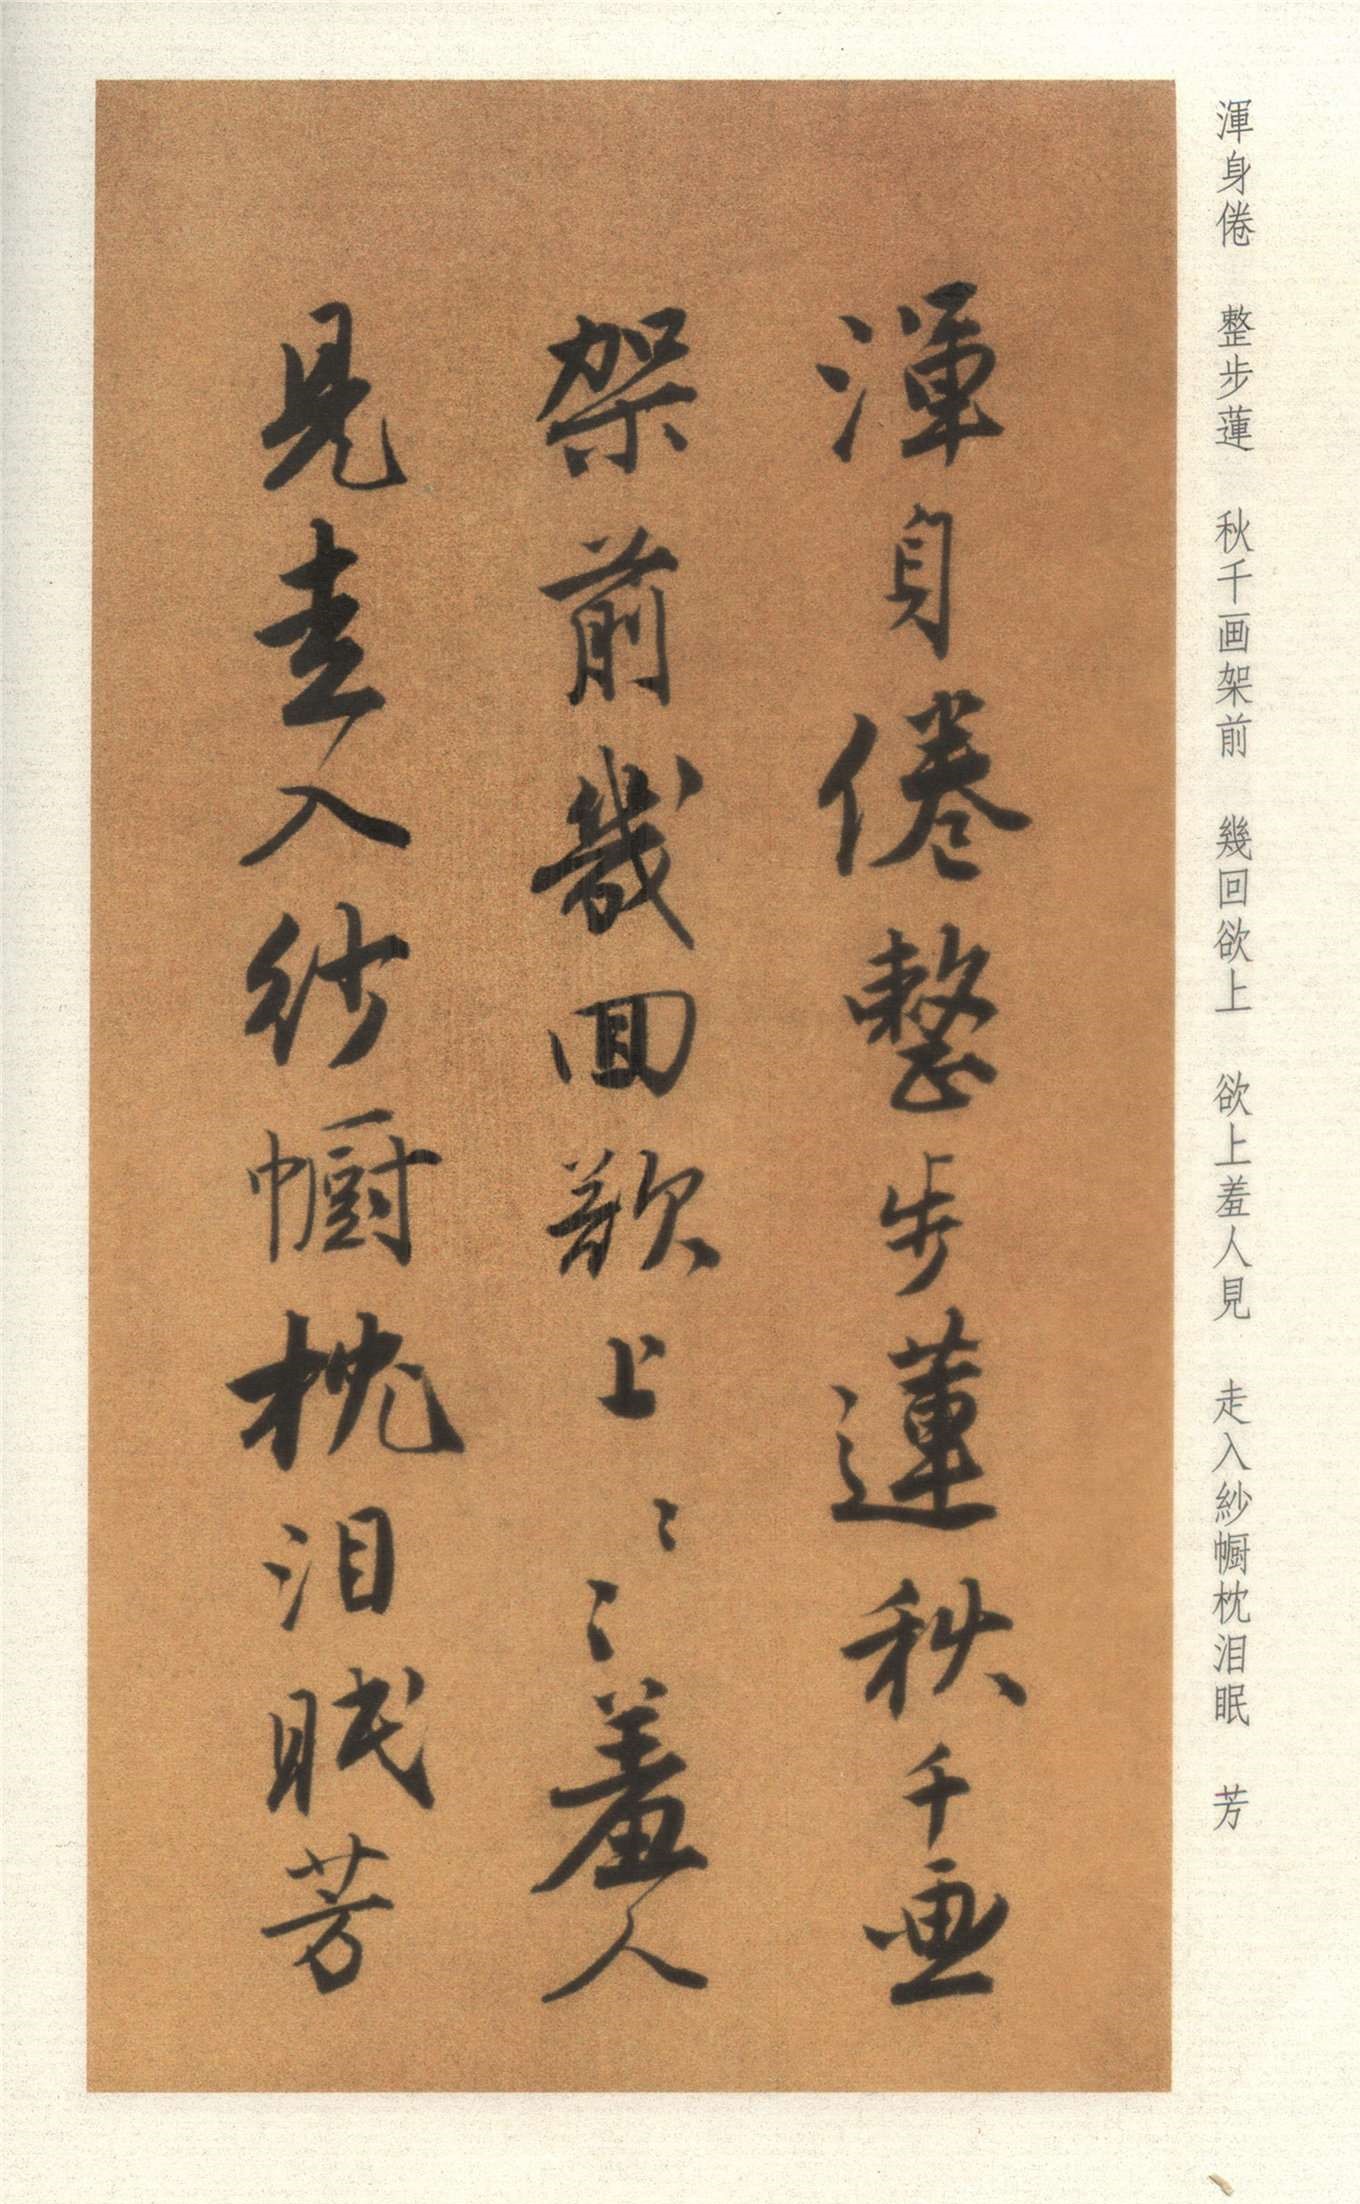 渾身倦　整步蓮　秋千画架前　幾回欲上　欲上羞人見　走入紗幮枕泪眠　芳
渾身倦整步蓮秋千画
架前幾回欲上〻〻羞人
見走入紗幮枕泪眠芳